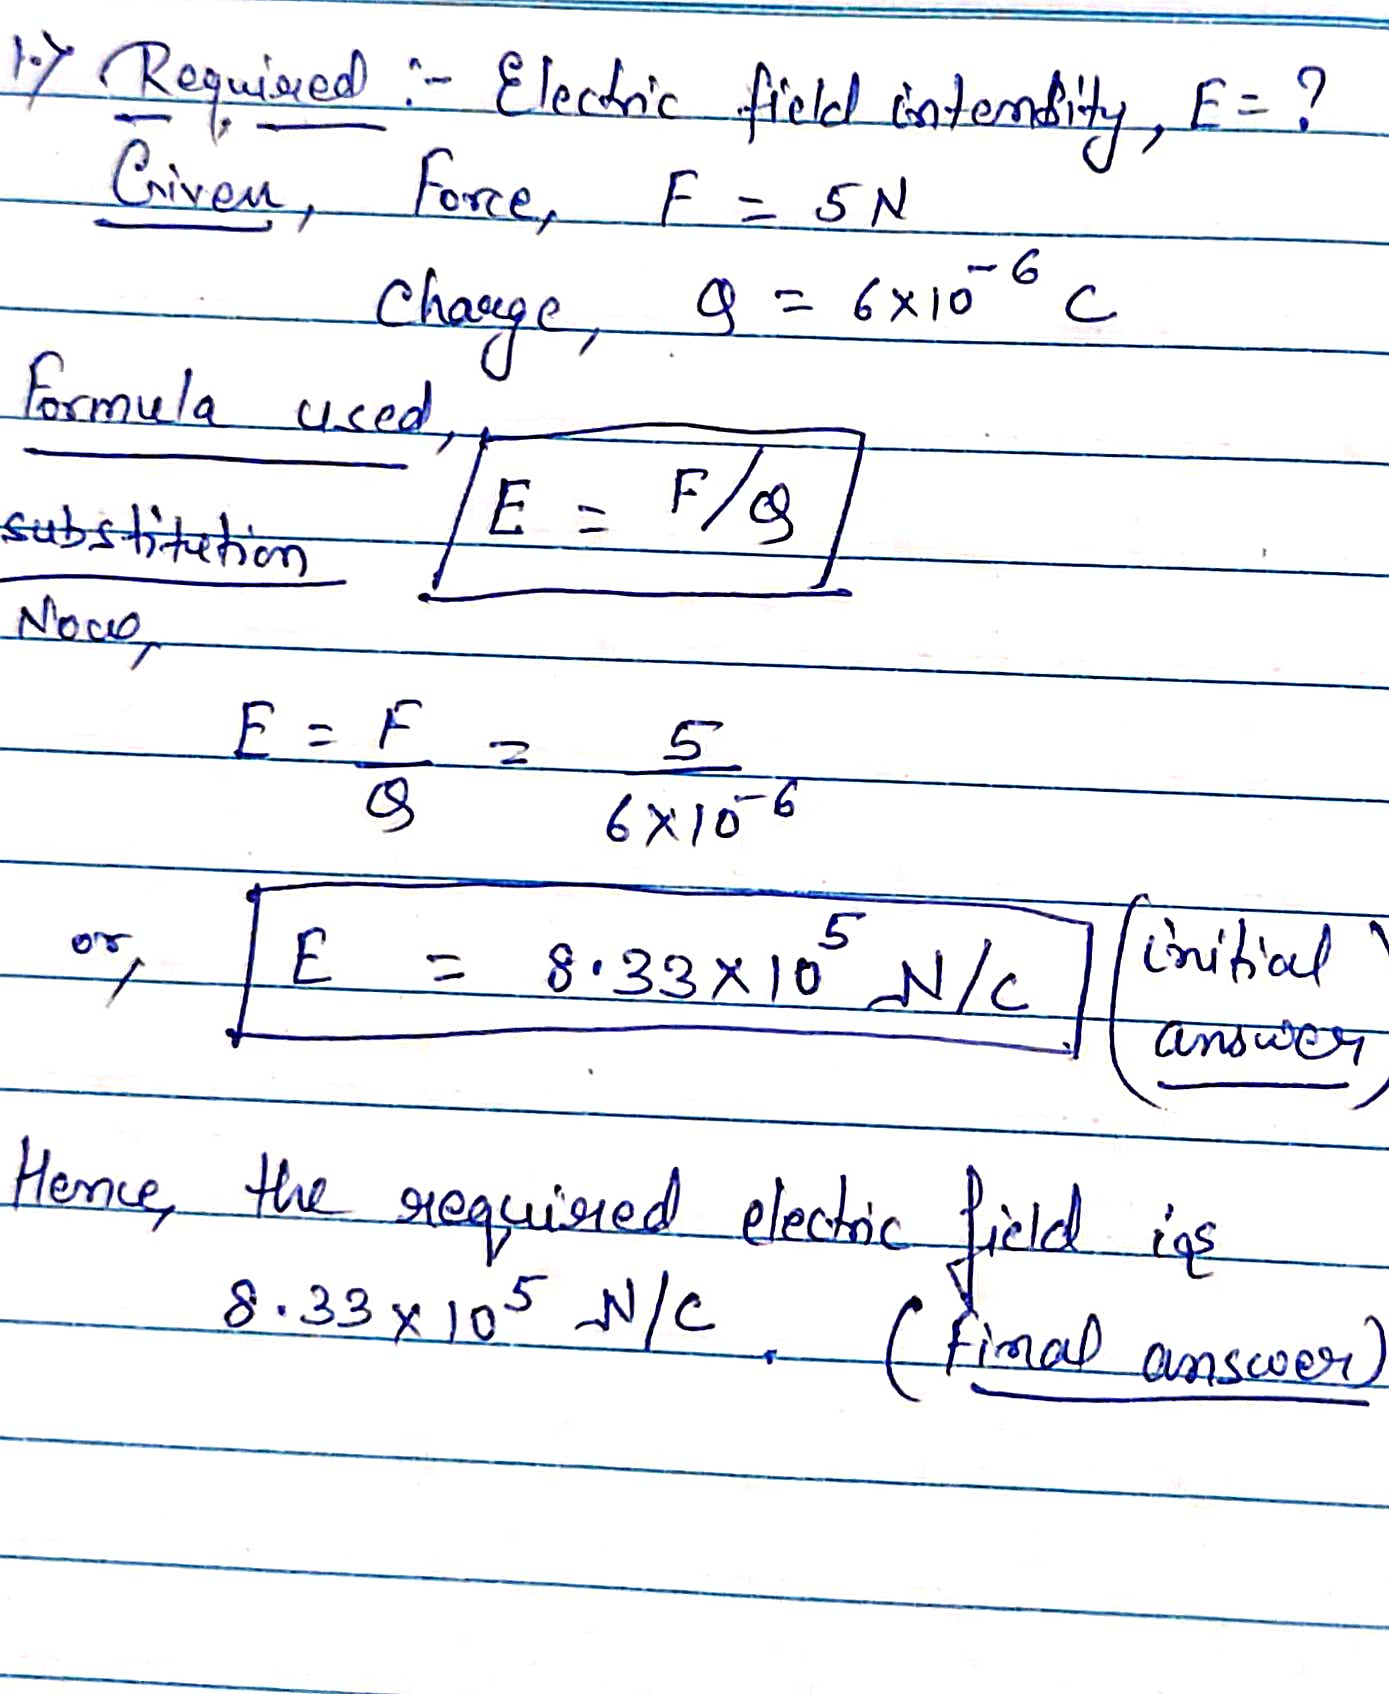 1.> Required :- Electric field intensity, E = ?
Given, Force, F = 5N
Charge, Q = 6×10⁻⁶ C
Formula used,
E = F/Q
substitution
Now,
E = F/Q = 5/6×10⁻⁶
or, E = 8.33×10⁵ N/C (initial answer)
Hence, the required electric field is
8.33×10⁵ N/C. (Final answer)